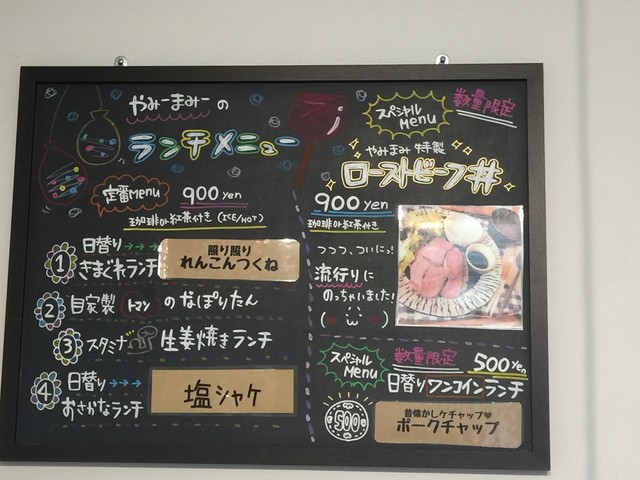 やみーまみーの
ランチメニュー
定番Menu 900yen
珈琲or紅茶付き (ICE/HOT)
1 日替り→→→
きまぐれランチ
照り照り
れんこんつくね
2 自家製 トマン のなぽりたん
3 スタミナ 生姜焼きランチ
4 日替り→→→
おさかなランチ
塩シャケ
スペシャル
Menu
数量限定
やみまみ 特製
ローストビーフ丼
900yen
珈琲or紅茶付き
つつつ、ついにっ!
流行りに
のっちゃいました!
スペシャル
Menu
数量限定 500yen
日替りワンコインランチ
500
昔懐かしケチャップ♥
ポークチャップ